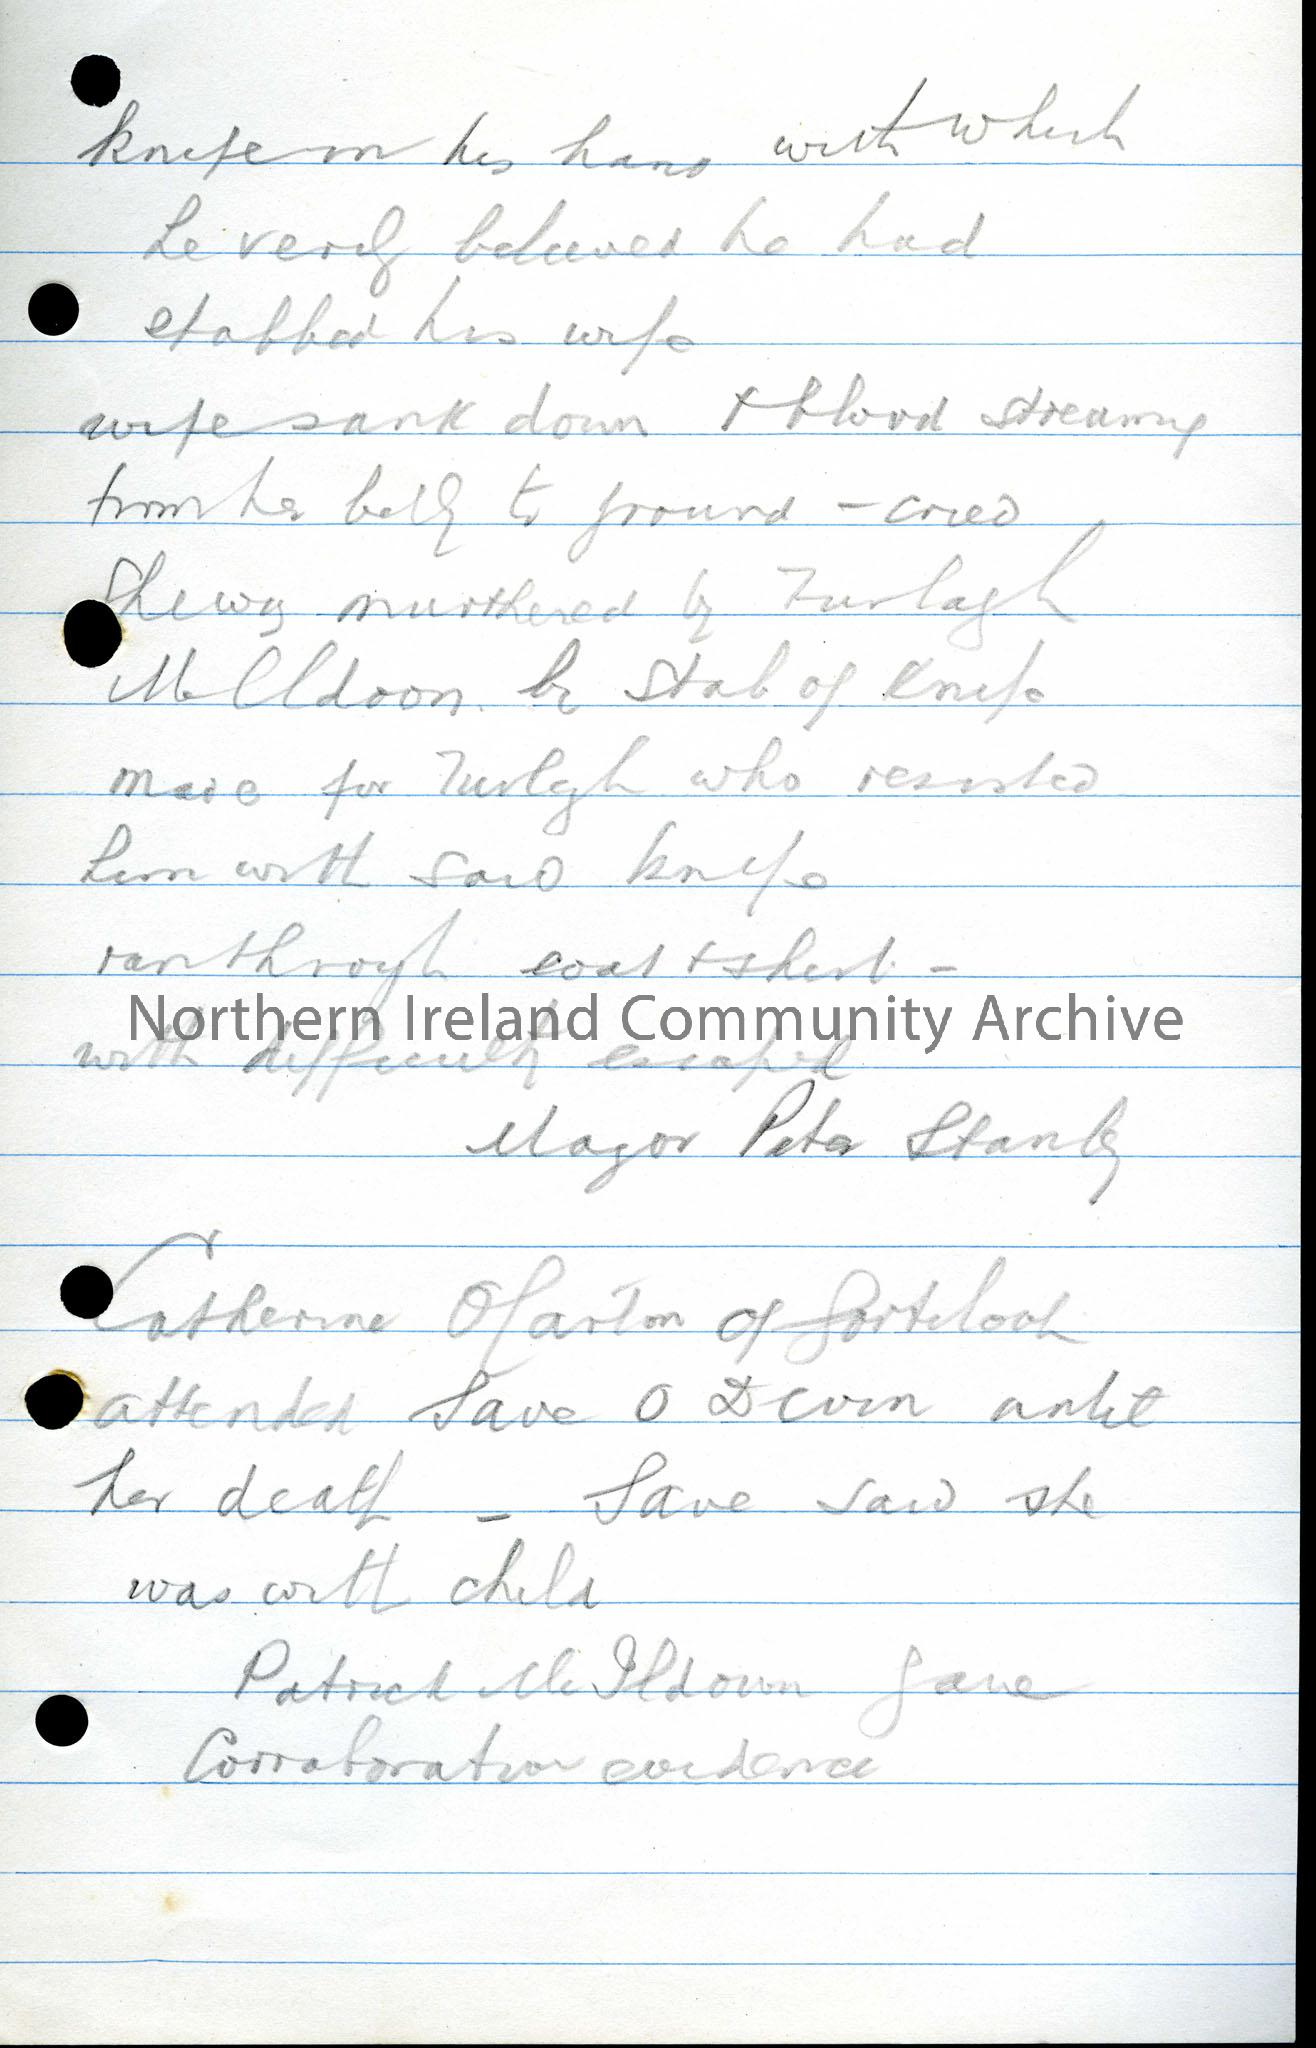 knife in his hand with which
he verily believed he had
stabbed his wife
wife sank down + blood streaming
from her belly to ground - cried
She was murthered by Turlagh
McIldoon by stab of knife
made for Turlagh who resisted
him with said knife
ran through coat + shirt -
Northern Ireland Community Archive
with difficulty escaped
Mayor Peter Stanley
Catherine of
attended Save O Devin
her death - Save said she
was with child
Patrick McIldown gave
Corroboration evidence